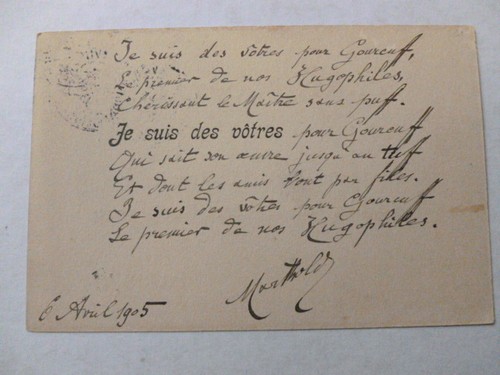 Je suis des vôtres pour Goureuf,
Le premier de nos Hugophiles,
Chérissant le Maître sans puff.
Je suis des vôtres pour Goureuff
Qui sait son œuvre jusqu'au tuf
Et dont les amis vont par files.
Je suis des vôtres pour Goureuff
Le premier de nos Hugophiles.
Marthold
6 Avril 1905